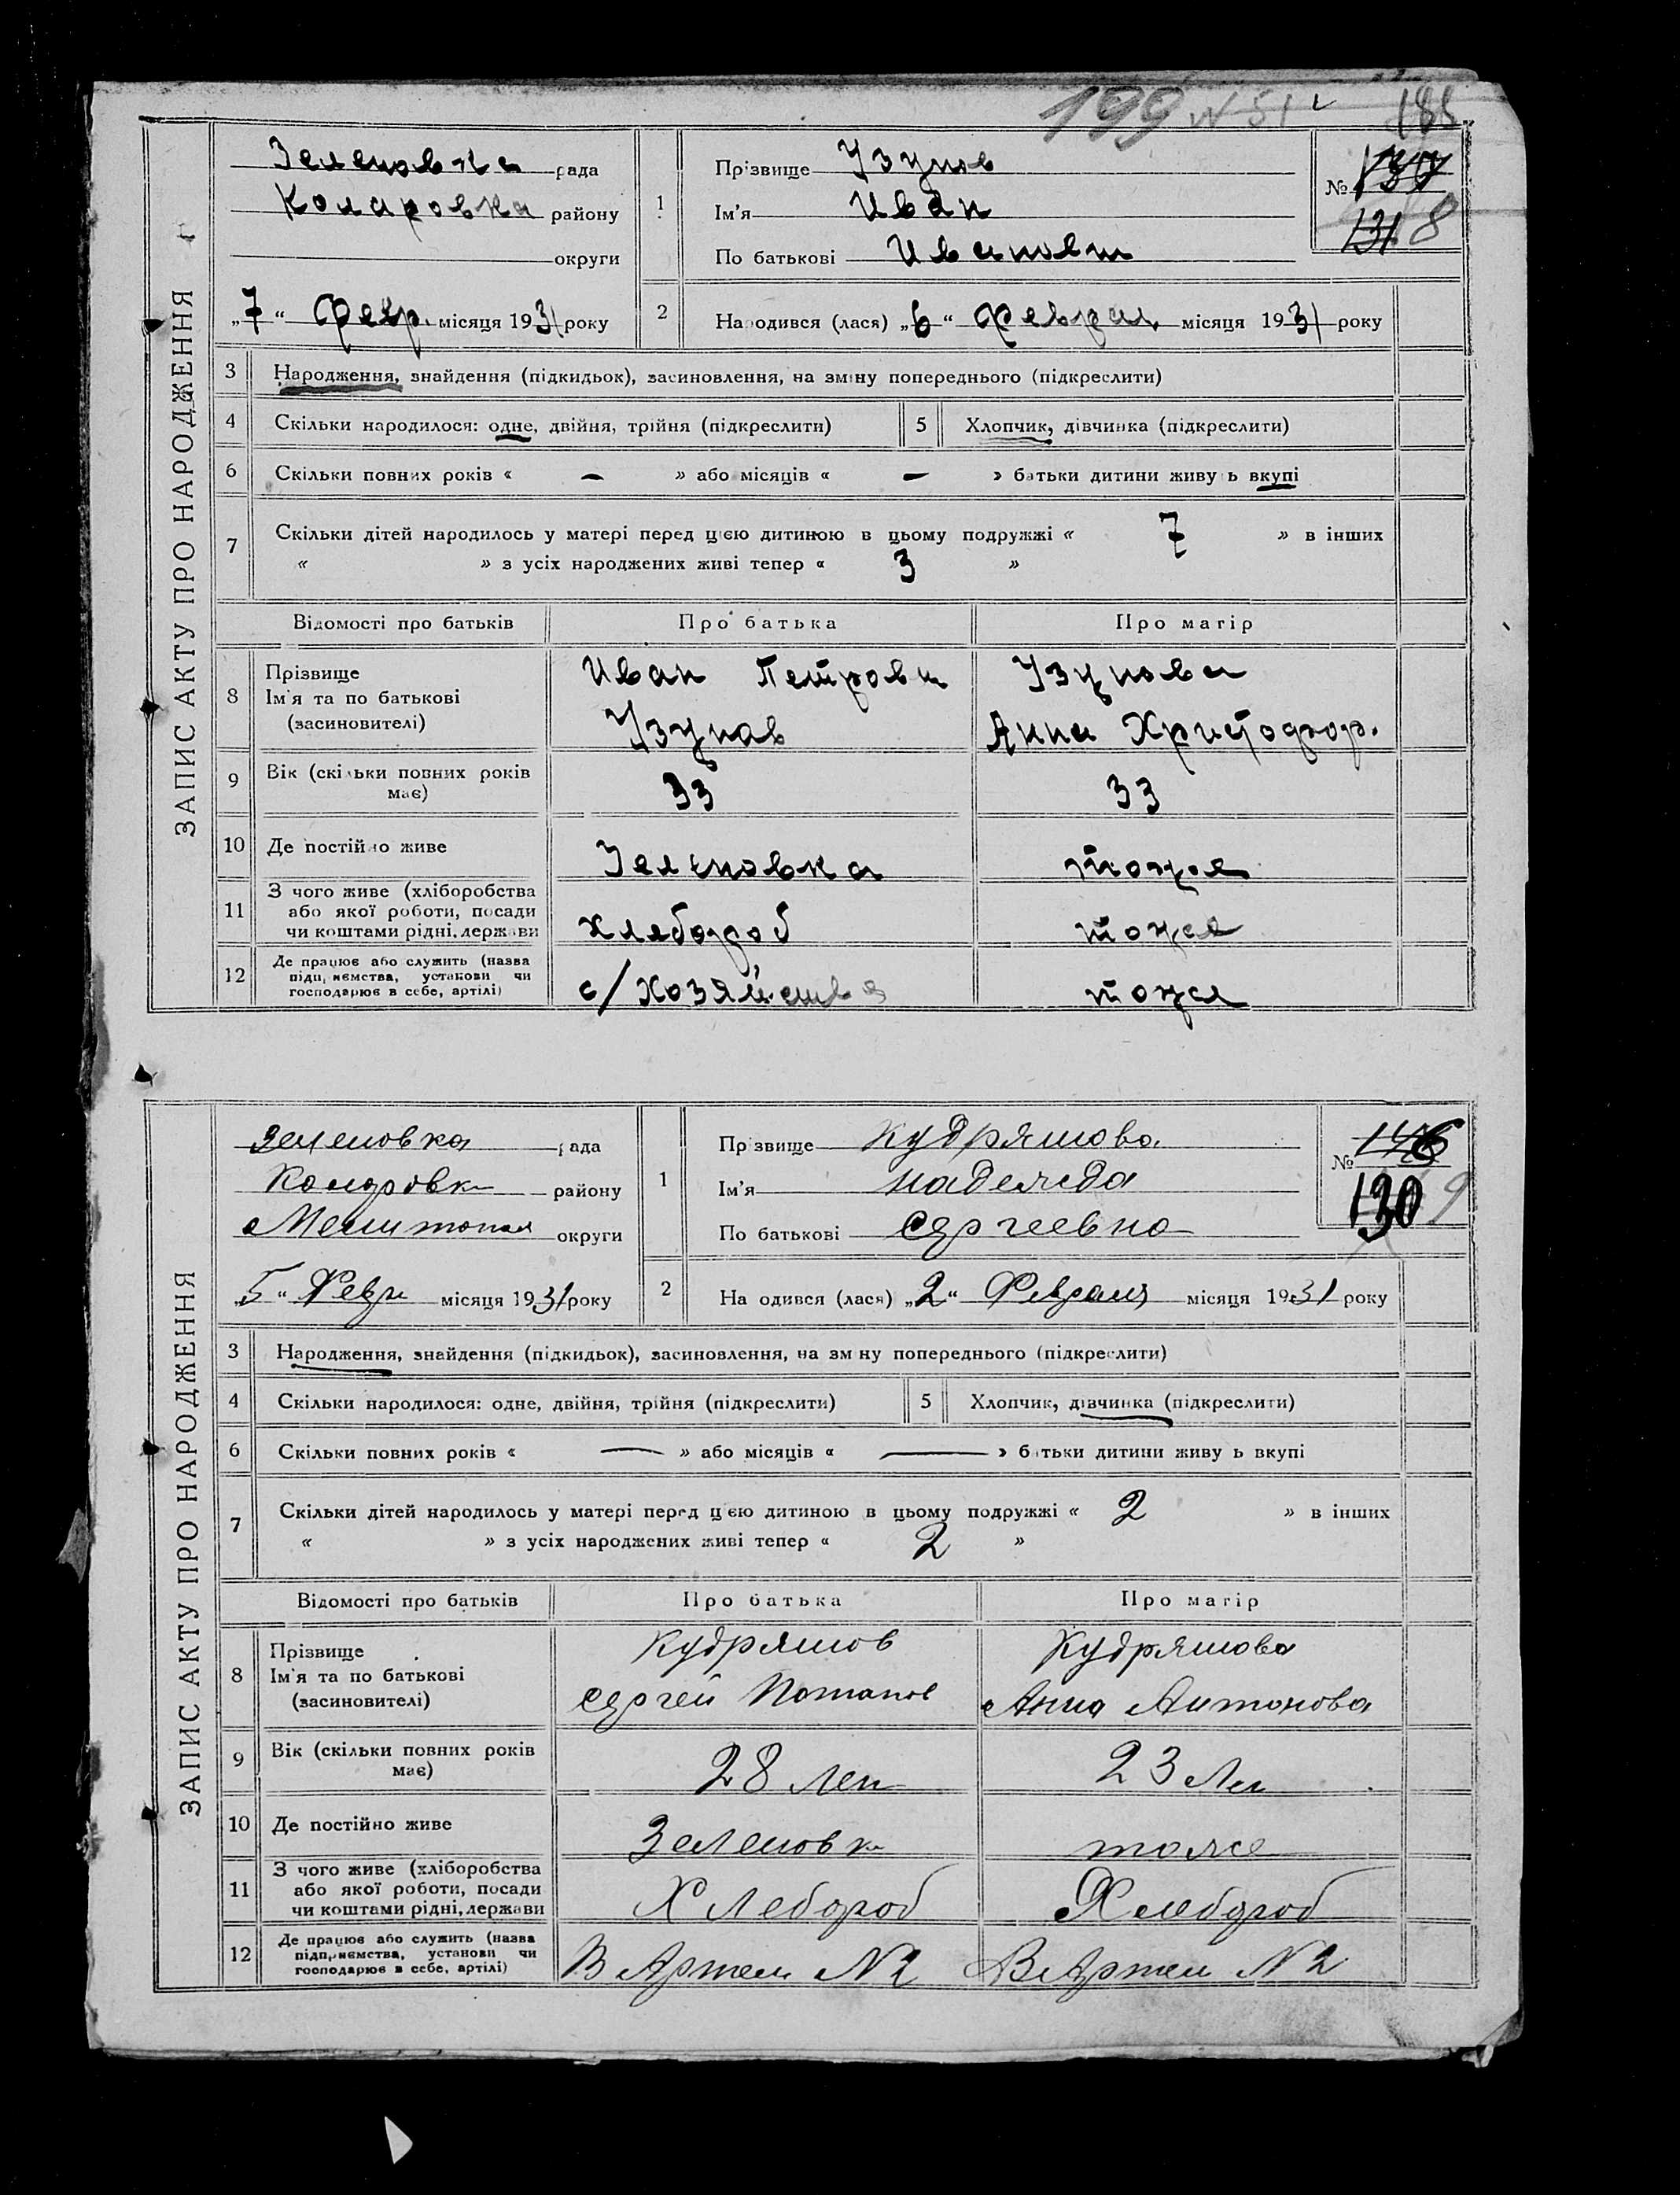 199 N 51
ЗАПИС АКТУ ПРО НАРОДЖЕННЯ
Зеленовка рада
Коларовка району
округи
„7“ Февр. місяця 1931 року
1
Прізвище Узунов
Ім'я Иван
По батькові Иванович
№ 137
131 8
2
Народився (лася) „6“ Феврал. місяця 1931 року
3 Народження, знайдення (підкидьок), засиновлення, на зміну попереднього (підкреслити)
4 Скільки народилося: одне, двійня, трійня (підкреслити) 5 Хлопчик, дівчинка (підкреслити)
6 Скільки повних років « — » або місяців « — » батьки дитини живуть вкупі
7 Скільки дітей народилось у матері перед цією дитиною в цьому подружжі « 7 » в інших
« » з усіх народжених живі тепер « 3 »
Відомості про батьків Про батька Про матір
8 Прізвище Ім'я та по батькові (засновителі)
Иван Петрович Узунов
Узунова Анна Христофор.
9 Вік (скільки повних років має) 33 33
10 Де постійно живе Зеленовка тоже
11 З чого живе (хліборобства або якої роботи, посади чи коштами рідні, держави хлебороб тоже
12 Де працює або служить (назва підприємства, установи чи господарює в себе, артілі) с/хозяйства тоже
ЗАПИС АКТУ ПРО НАРОДЖЕННЯ
Зеленовка рада
Коларовк району
Мелитопол округи
„5“ Февр місяця 1931 року
1
Прізвище Кудряшова
Ім'я Надежда
По батькові Сергеевна
№ 146
130 9
2
Народився (лася) „2“ Февраля місяця 1931 року
3 Народження, знайдення (підкидьок), засиновлення, на зміну попереднього (підкреслити)
4 Скільки народилося: одне, двійня, трійня (підкреслити) 5 Хлопчик, дівчинка (підкреслити)
6 Скільки повних років « — » або місяців « — » батьки дитини живуть вкупі
7 Скільки дітей народилось у матері перед цією дитиною в цьому подружжі « 2 » в інших
« » з усіх народжених живі тепер « 2 »
Відомості про батьків Про батька Про матір
8 Прізвище Ім'я та по батькові (засиновителі)
Кудряшов Сергей Потапов
Кудряшова Анна Антонова
9 Вік (скільки повних років має) 28 лет 23 лет
10 Де постійно живе Зеленовк тоже
11 З чого живе (хліборобства або якої роботи, посади чи коштами рідні, держави Хлебороб Хлебороб
12 Де працює або служить (назва підприємства, установи чи господарює в себе, артілі) В Артели N 2 В Артели N 2